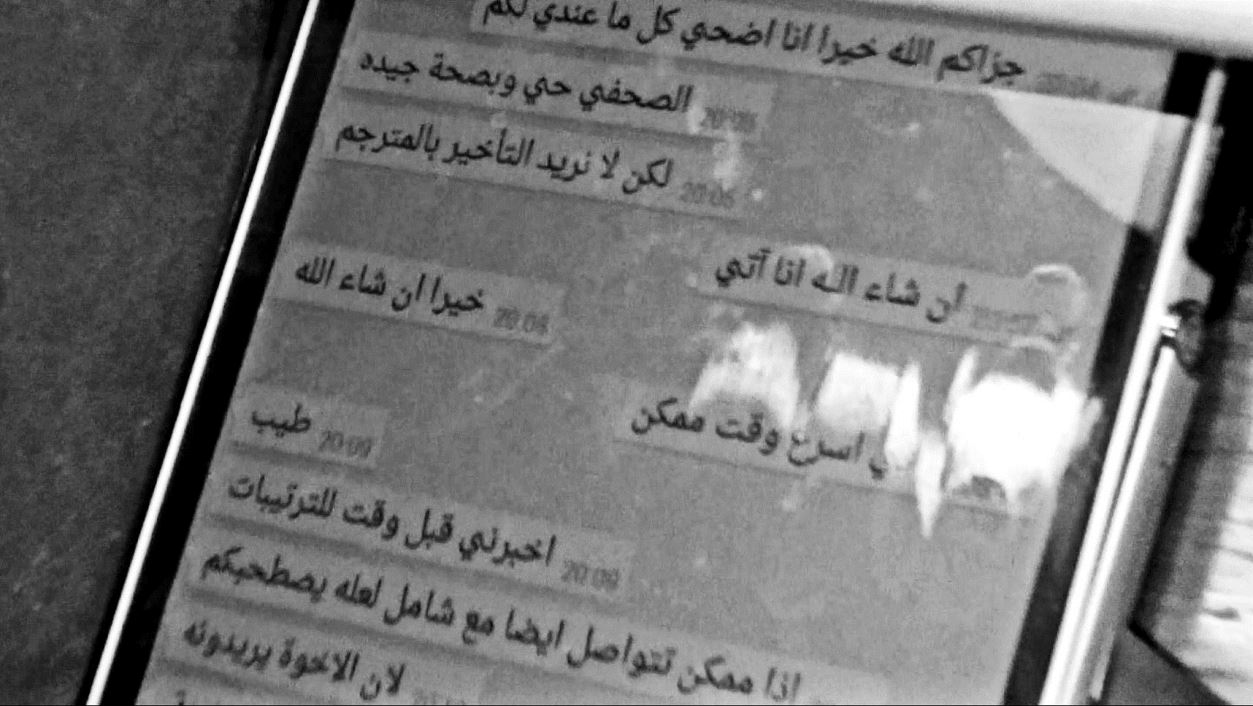 جزاكم الله خيرا انا اضحي كل ما عندي لكم
الصحفي حي وبصحة جيده 20:06
لكن لا نريد التأخير بالمترجم 20:06
أن شاء اله انا آتي
خيرا ان شاء الله 20:08
اسرع وقت ممكن
طيب 20:09
اخبرني قبل وقت للترتيبات 20:09
اذا ممكن تتواصل ايضا مع شامل لعله يصطحبكم
لان الاخوة يريدونه